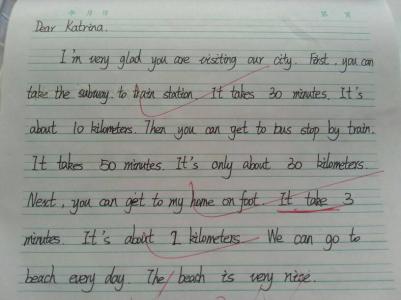 Dear Katrina.
I'm very glad you are visiting our city. First, you can
take the subway to train station. It takes 30 minutes. It's
about 10 kilometers. Then you can get to bus stop by train.
It takes 50 minutes. It's only about 30 kilometers.
Next, you can get to my home on foot. It take 3
minutes. It's about 2 kilometers. We can go to
beach every day. The beach is very nice.